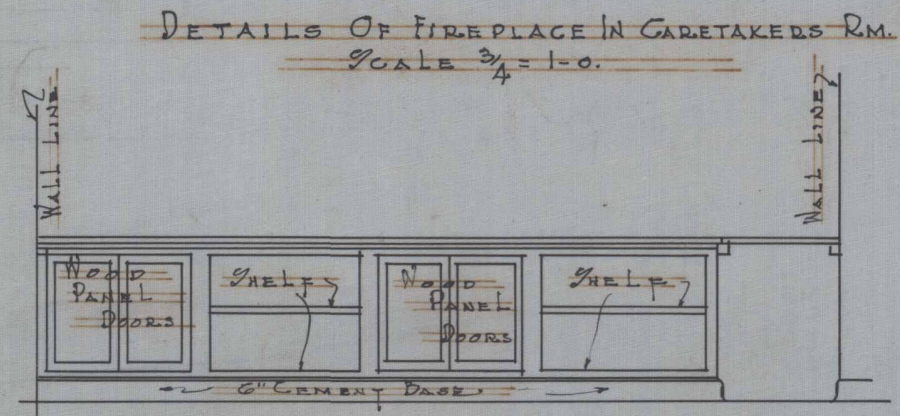 DETAILS OF FIREPLACE IN CARETAKERS RM.
SCALE 3/4 = 1-0.
WALL LINE
WALL LINE
WOOD
PANEL
DOORS
SHELF
WOOD
PANEL
DOORS
SHELF
6" CEMENT BASE